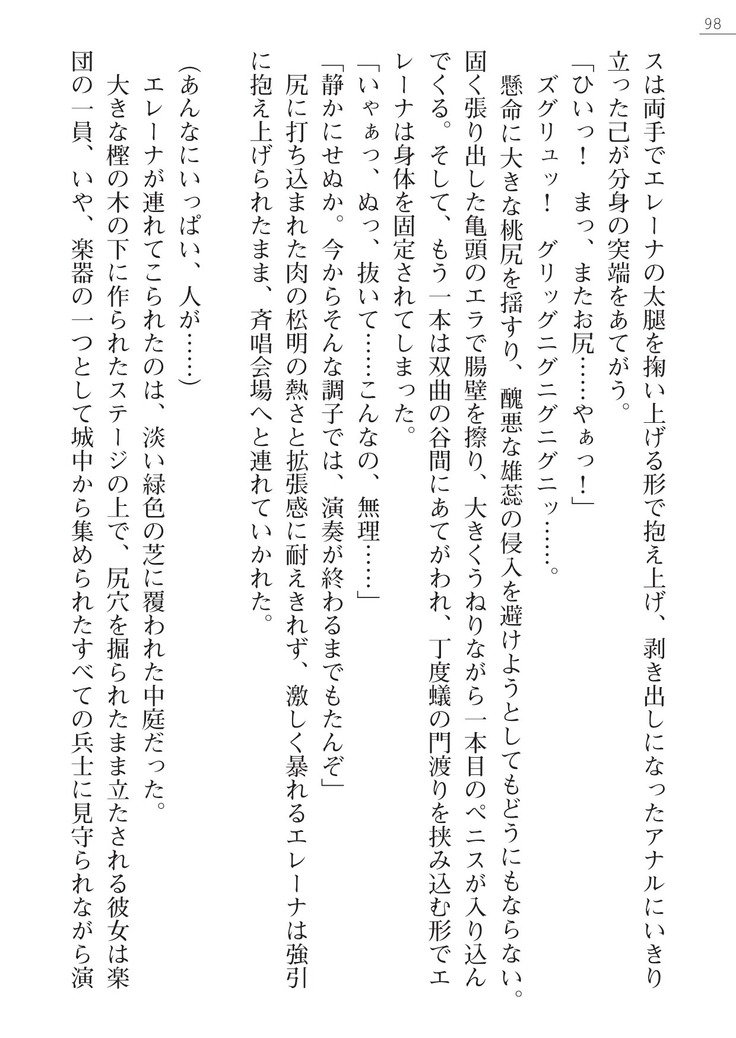 98
スは両手でエレーナの太腿を掬い上げる形で抱え上げ、剥き出しになったアナルにいきり
立った己が分身の突端をあてがう。
「ひいっ！　まっ、またお尻……やぁっ！」
ズグリュッ！　グリッグニグニグニグニッ……。
懸命に大きな桃尻を揺すり、醜悪な雄蕊の侵入を避けようとしてもどうにもならない。
固く張り出した亀頭のエラで腸壁を擦り、大きくうねりながら一本目のペニスが入り込ん
でくる。そして、もう一本は双曲の谷間にあてがわれ、丁度蟻の門渡りを挟み込む形でエ
レーナは身体を固定されてしまった。
「いゃぁっ、ぬっ、抜いて……こんなの、無理……」
「静かにせぬか。今からそんな調子では、演奏が終わるまでもたんぞ」
尻に打ち込まれた肉の松明の熱さと拡張感に耐えきれず、激しく暴れるエレーナは強引
に抱え上げられたまま、斉唱会場へと連れていかれた。
(あんなにいっぱい、人が……)
エレーナが連れてこられたのは、淡い緑色の芝に覆われた中庭だった。
大きな樫の木の下に作られたステージの上で、尻穴を掘られたまま立たされる彼女は楽
団の一員、いや、楽器の一つとして城中から集められたすべての兵士に見守られながら演